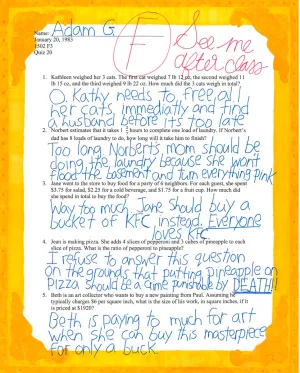 Name: Adam G.
January 20, 1983
1502 F3
Quiz 20
F
See me
after class
1. Kathleen weighed her 3 cats. The first cat weighed 7 lb 12 oz, the second weighed 11
lb 15 oz, and the third weighed 9 lb 22 oz. How much did the 3 cats weigh in total?
O. Kathy needs to free all
her cats immediatly and find
a husband before it's too late
2. Norbert estimates that it takes 1 hours to complete one load of laundry. If Norbert's
dad has 8 loads of laundry to do, how long will it take him to finish?
Too long. Norberts mom should be
doing the laundry because she won't
flood the basement and turn everything pink
3. Jane went to the store to buy food for a party of 6 neighbors. For each guest, she spent
$3.75 for salad, $2.25 for a cold beverage, and $1.75 for a fruit cup. How much did
she spend in total to buy the food?
Way too much. Jane should buy a
bucket of KFC instead. Everyone
loves KFC
4. Jean is making pizza. She adds 4 slices of pepperoni and 3 cubes of pineapple to each
slice of pizza. What is the ratio of pepperoni to pineapple?
I refuse to answer this question
on the grounds that putting pineapple on
pizza should be a crime punishable by DEATH!!
5. Beth is an art collector who wants to buy a new painting from Paul. Assuming he
typically charges $6 per square inch, what is the size of his work, in square inches, if it
is priced at $1920?
Beth is paying to much for art
when she can buy this masterpiece
for only a buck.